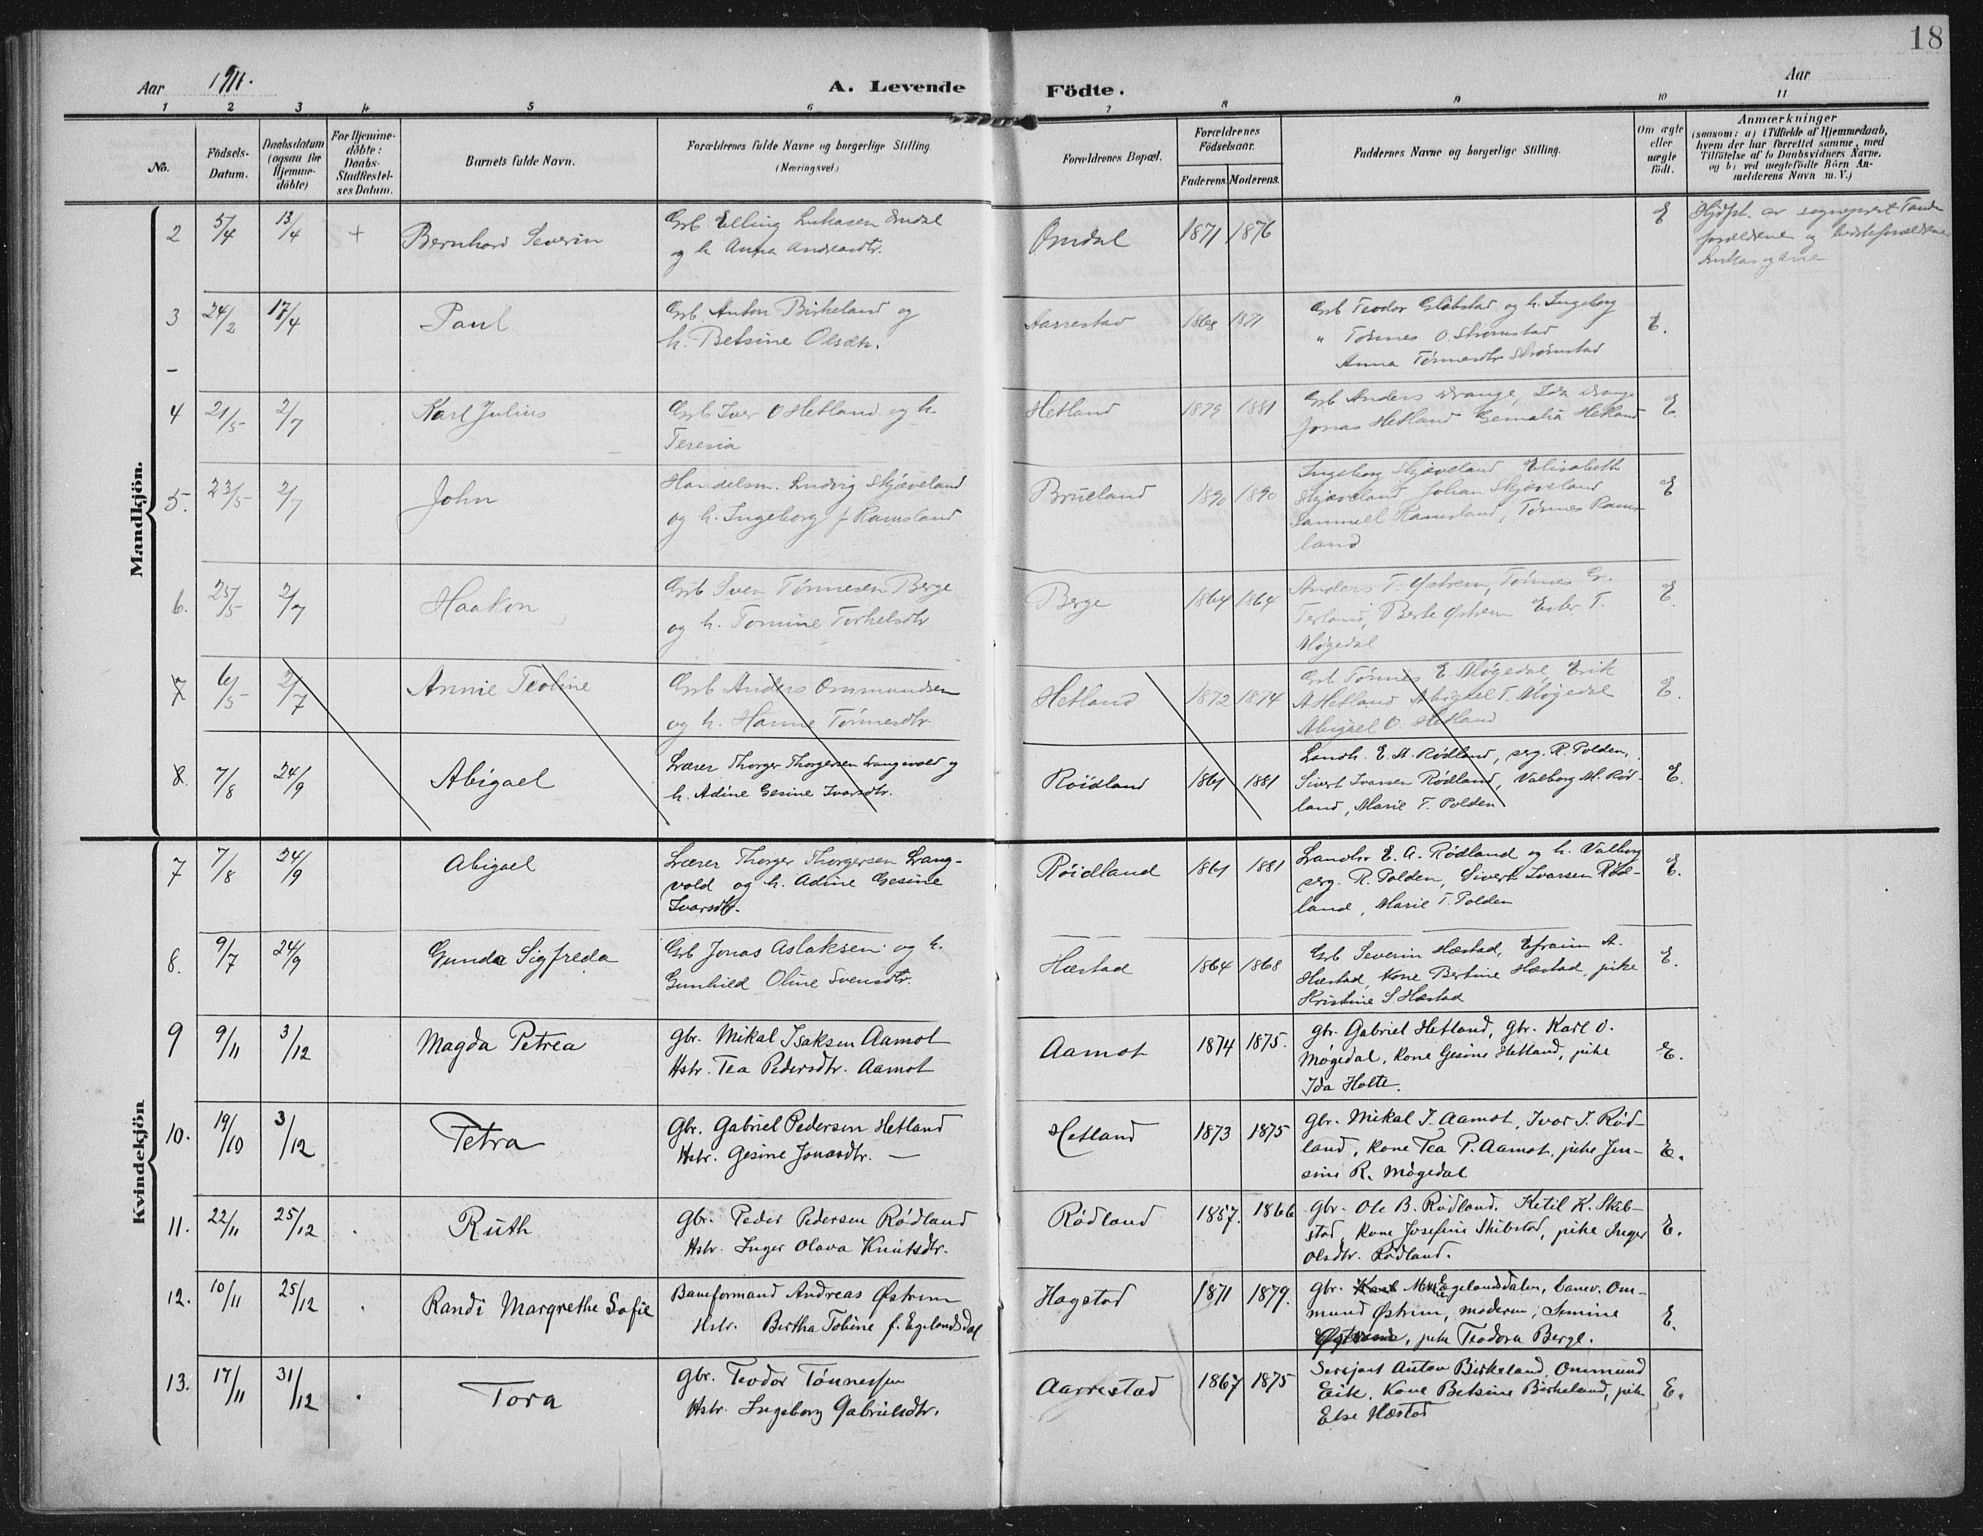 18
Aar 1911. A. Levende Födte. Aar
1 2 3 4 5 6 7 8 9 10 11
No.
Födsels-Datum.
Daabsdatum (ogsaa for Hjemme-döbte)
For Hjemme-döbte: Daabs-Stadfæstel-ses Datum.
Barnets fulde Navn.
Forældrenes fulde Navne og borgerlige Stilling (Næringsvei.)
Forældrenes Bopæl.
Forældrenes Födselsaar.
Faderens. Moderens.
Faddernes Navne og borgerlige Stilling.
Om ægte eller uægte født.
Anmærkninger
(saasom: a) i Tilfælde af Hjemmedaab,
hvem der har forrettet samme, med
Tilföielse af to Daabsvidners Navne,
og b) ved uægtefödte Börn An-
melderens Navn m. V.)
Mandkjön.
2 5/4 13/4 + Bernhard Severin
Grb Elling Lukasen Omdal
og h Anna Andreasdtr.
Omdal 1871 1876 E
Hjdpt. av sogneprest Tande
forældrene og bedsteforældrene
Lukas og
3 24/2 17/4 Paul
Grb Anton Birkeland og
h. Betsine Olsdtr.
Aarrestad 1868 1871
Grb Teodor Gløbstad og h. Ingeborg
" Tønnes O Strømstad
Anna Tønnesdtr Strømstad
E.
4 21/5 2/7 Karl Julius
Grb Iver O Hetland og h.
Teresia
Hetland 1879 1881
Grb Anders Drange, Ida Drange
Jonas Hetland Gemalia Hetland
E.
5. 23/5 2/7 John
Handelsm. Ludvig Skjæveland
og h. Ingeborg f Ramsland
Brueland 1890 1890
Ingeborg Skjæveland Elisabeth
Skjæveland Johan Skjæveland
Sammuel Ramsland, Tønnes Rams-
land
E
6. 25/5 2/7 Haakon
Grb Sven Tønnesen Berge
og h. Tomine Torkelsdtr
Berge 1864 1864
Anders T. Østrem, Tønnes G.
Terland, Berte Østrem Ester T.
Møgedal
E.
7 6/5 2/7 Annie Teoline
Grb Anders Ommundsen
og h. Hanne Tønnesdtr
Hetland 1872 1874
Grb Tønnes E Møgedal, Erik
A Hetland Abigael T. Møgedal
Abigael O. Hetland
E.
8. 7/8 24/9 Abigael
Lærer Thorger Thorgersen Langvold og
h. Adine Gesine Ivarsdtr.
Röidland 1861 1881
Landh. E. A. Rødland, serg. R. Polden,
Sivert Ivarsen Rødland, Valborg M. Rød-
land, Marie T. Polden
E.
Kvindekjön
7 7/8 24/9 Abigael
Lærer Thorger Thorgersen Lang-
vold og h. Adine Gesine
Ivarsdtr.
Röidland 1861 1881
Landhr E. A. Rødland og h. Valborg
serg. R. Polden, Sivert Ivarsen Rød-
land, Marie T. Polden
E.
8. 9/7 24/9 Gunda Sigfreda
Grb Jonas Aslaksen og h.
Gunhild Oline Svensdtr.
Hæstad 1864 1868
Grb Severin Hæstad, Efraim A.
Hæstad, Kone Bertine Hæstad, pike
Kristine S Hæstad
E.
9 9/11 3/12 Magda Petrea
Gbr. Mikal Isaksen Aamot
Hstr. Tea Pedersdtr. Aamot
Aamot 1874 1875.
Gbr. Gabriel Hetland, gbr. Karl O.
Møgedal, kone Gesine Hetland, pike
Ida Holte.
E.
10. 19/10 3/12 Petra
Gbr. Gabriel Pedersen Hetland
Hstr. Gesine Jonasdtr. —
Hetland 1873 1875
Gbr. Mikal I. Aamot, Ivar I. Rød-
land, kone Tea P. Aamot, pike Jen-
sine R. Møgedal
E.
11. 22/11 25/12 . Ruth
Gbr. Peder Pedersen Rødland
Hstr. Inger Olava Knutsdtr.
Rødland 1857. 1866
Gbr. Ole B. Rødland. Ketil K. Skib-
stad, kone Josefine Skibstad, pike Inger
Olsdtr. Rødland.
E.
12. 10/11 25/12 . Randi Margrethe Sofie
Baneformand Andreas Østrem
Hstr. Bertha Tobine f. Egelandsdal
Hagstad 1871 1879.
Gbr. Egelandsdalen, banev. Om-
mund Østrem, moderen, Semine
Østrem, pike Teodora Berge.
E.
13. 17/11 31/12 . Tora
Gbr. Teodor Tønnessen
Hstr. Ingeborg Gabrielsdtr.
Aarrestad 1867 1875
Sersjant Anton Birkeland, Ommund
Eik, Kone Betsine Birkeland, pike
Else Hæstad
E.